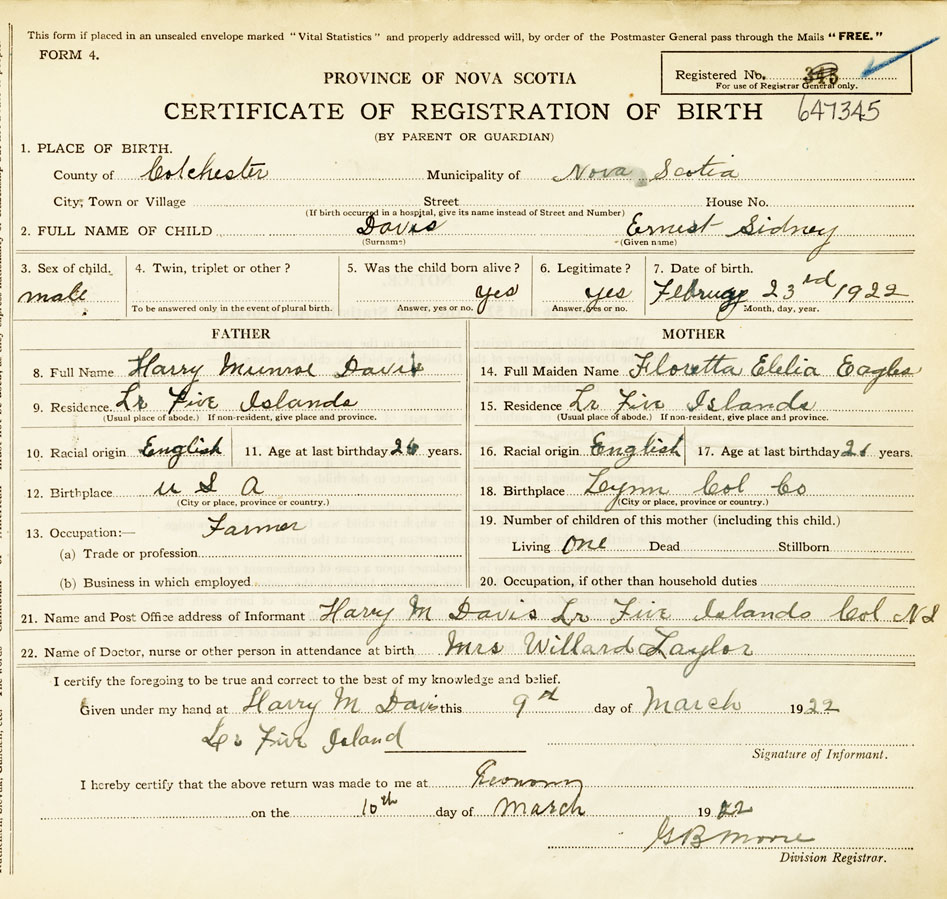 This form if placed in an unsealed envelope marked "Vital Statistics" and properly addressed will, by order of the Postmaster General pass through the Mails "FREE."
FORM 4.
Registered No. 345
For use of Registrar General only.
PROVINCE OF NOVA SCOTIA
CERTIFICATE OF REGISTRATION OF BIRTH 647345
(BY PARENT OR GUARDIAN)
1. PLACE OF BIRTH.
County of Colchester Municipality of Nova Scotia
City, Town or Village Street House No.
(If birth occurred in a hospital, give its name instead of Street and Number)
2. FULL NAME OF CHILD Davis Ernest Sidney
(Surname) (Given name)
3. Sex of child. 4. Twin, triplet or other? 5. Was the child born alive? 6. Legitimate? 7. Date of birth.
male yes yes 23rd 1922
To be answered only in the event of plural birth. Answer, yes or no. Answer, yes or no. Month, day, year.
FATHER MOTHER
8. Full Name Harry Munroe Davis 14. Full Maiden Name Floretta Eagles
9. Residence. Lr Five Islands 15. Residence Lr Five Islands
(Usual place of abode.) If non-resident, give place and province. (Usual place of abode.) If non-resident, give place and province.
10. Racial origin English 11. Age at last birthday 26 years. 16. Racial origin English 17. Age at last birthday 21 years.
12. Birthplace U S A 18. Birthplace Lynn Col Co
(City or place, province or country.) (City or place, province or country.)
13. Occupation:— Farmer 19. Number of children of this mother (including this child.)
(a) Trade or profession Living One Dead Stillborn
(b) Business in which employed 20. Occupation, if other than household duties
21. Name and Post Office address of Informant Harry M Davis Lr Five Islands Col N S
22. Name of Doctor, nurse or other person in attendance at birth Mrs Willard Taylor
I certify the foregoing to be true and correct to the best of my knowledge and belief.
Given under my hand at Harry M Davis this 9th day of March 1922
Lr Five Island
Signature of Informant.
I hereby certify that the above return was made to me at Economy
on the 10th day of March 1922
G B Moore
Division Registrar.